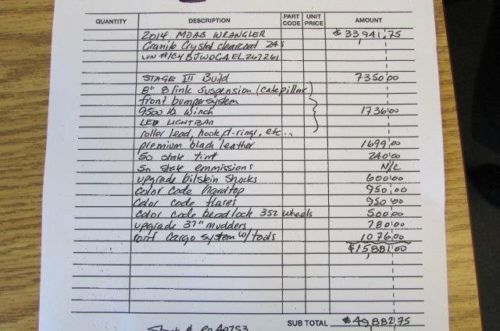 QUANTITY DESCRIPTION PART CODE UNIT PRICE AMOUNT
2014 MOAB WRANGLER $33,941.75
Granite Crystal clearcoat
STAGE III Build 7350.00
8" 8 link suspension (catepillar)
front bumper system
9500 lb winch 1736.00
LED LIGHTBAR
roller lead, hook, d-rings, etc...
premium black leather 1699.00
50 state tint 240.00
50 state emmissions N/C
upgrade bilstein shocks 600.00
color code hardtop 950.00
color code flares 950.00
color code beadlock 352 wheels 500.00
upgrade 37" mudders 780.00
cargo system w/tools 1076.00
$15,881.00
SUB TOTAL $49,882.75